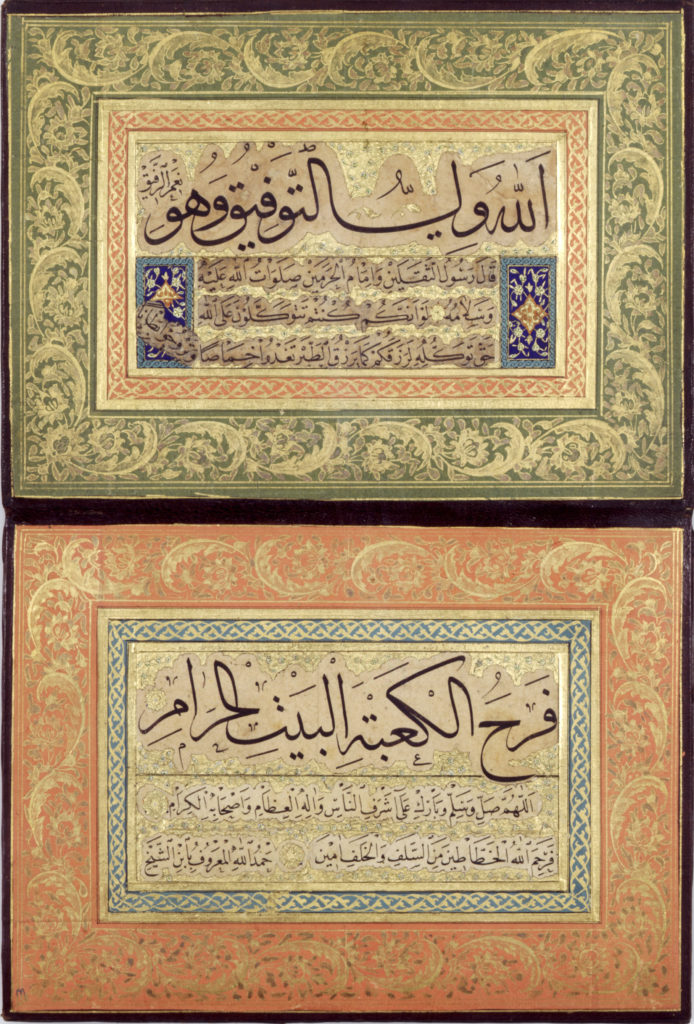 اَللّٰهُ وَلِيُّ التَّوْفِيقِ وَهُوَ نِعْمَ الرَّفِيقُ
قَالَ رَسُولُ الثَّقَلَيْنِ وَاِمَامُ الْحَرَمَيْنِ صَلَوَاتُ اللّٰهِ عَلَيْهِ
وَسَلَامُهُ لَوْ اَنَّكُمْ كُنْتُمْ تَتَوَكَّلُونَ عَلَى اللّٰهِ
حَقَّ تَوَكُّلِهِ لَرَزَقَكُمْ كَمَا يَرْزُقُ الطَّيْرَ تَغْدُو خِمَاصًا
وَتَرُوحُ بِطَانًا
فَرَحُ الْكَعْبَةِ الْبَيْتِ الْحَرَامِ
اَللّٰهُمَّ صَلِّ وَسَلِّمْ وَبَارِكْ عَلَى اَشْرَفِ النَّاسِ وَاٰلِهِ الْعِظَامِ وَاَصْحَابِهِ الْكِرَامِ
فَرَحِمَ اللّٰهُ الْخَطَّاطِينَ مِنَ السَّلَفِ وَالْخَلَفِ اٰمِينَ حَمْدُ اللّٰهِ الْمَعْرُوفُ بِابْنِ الشَّيْخِ